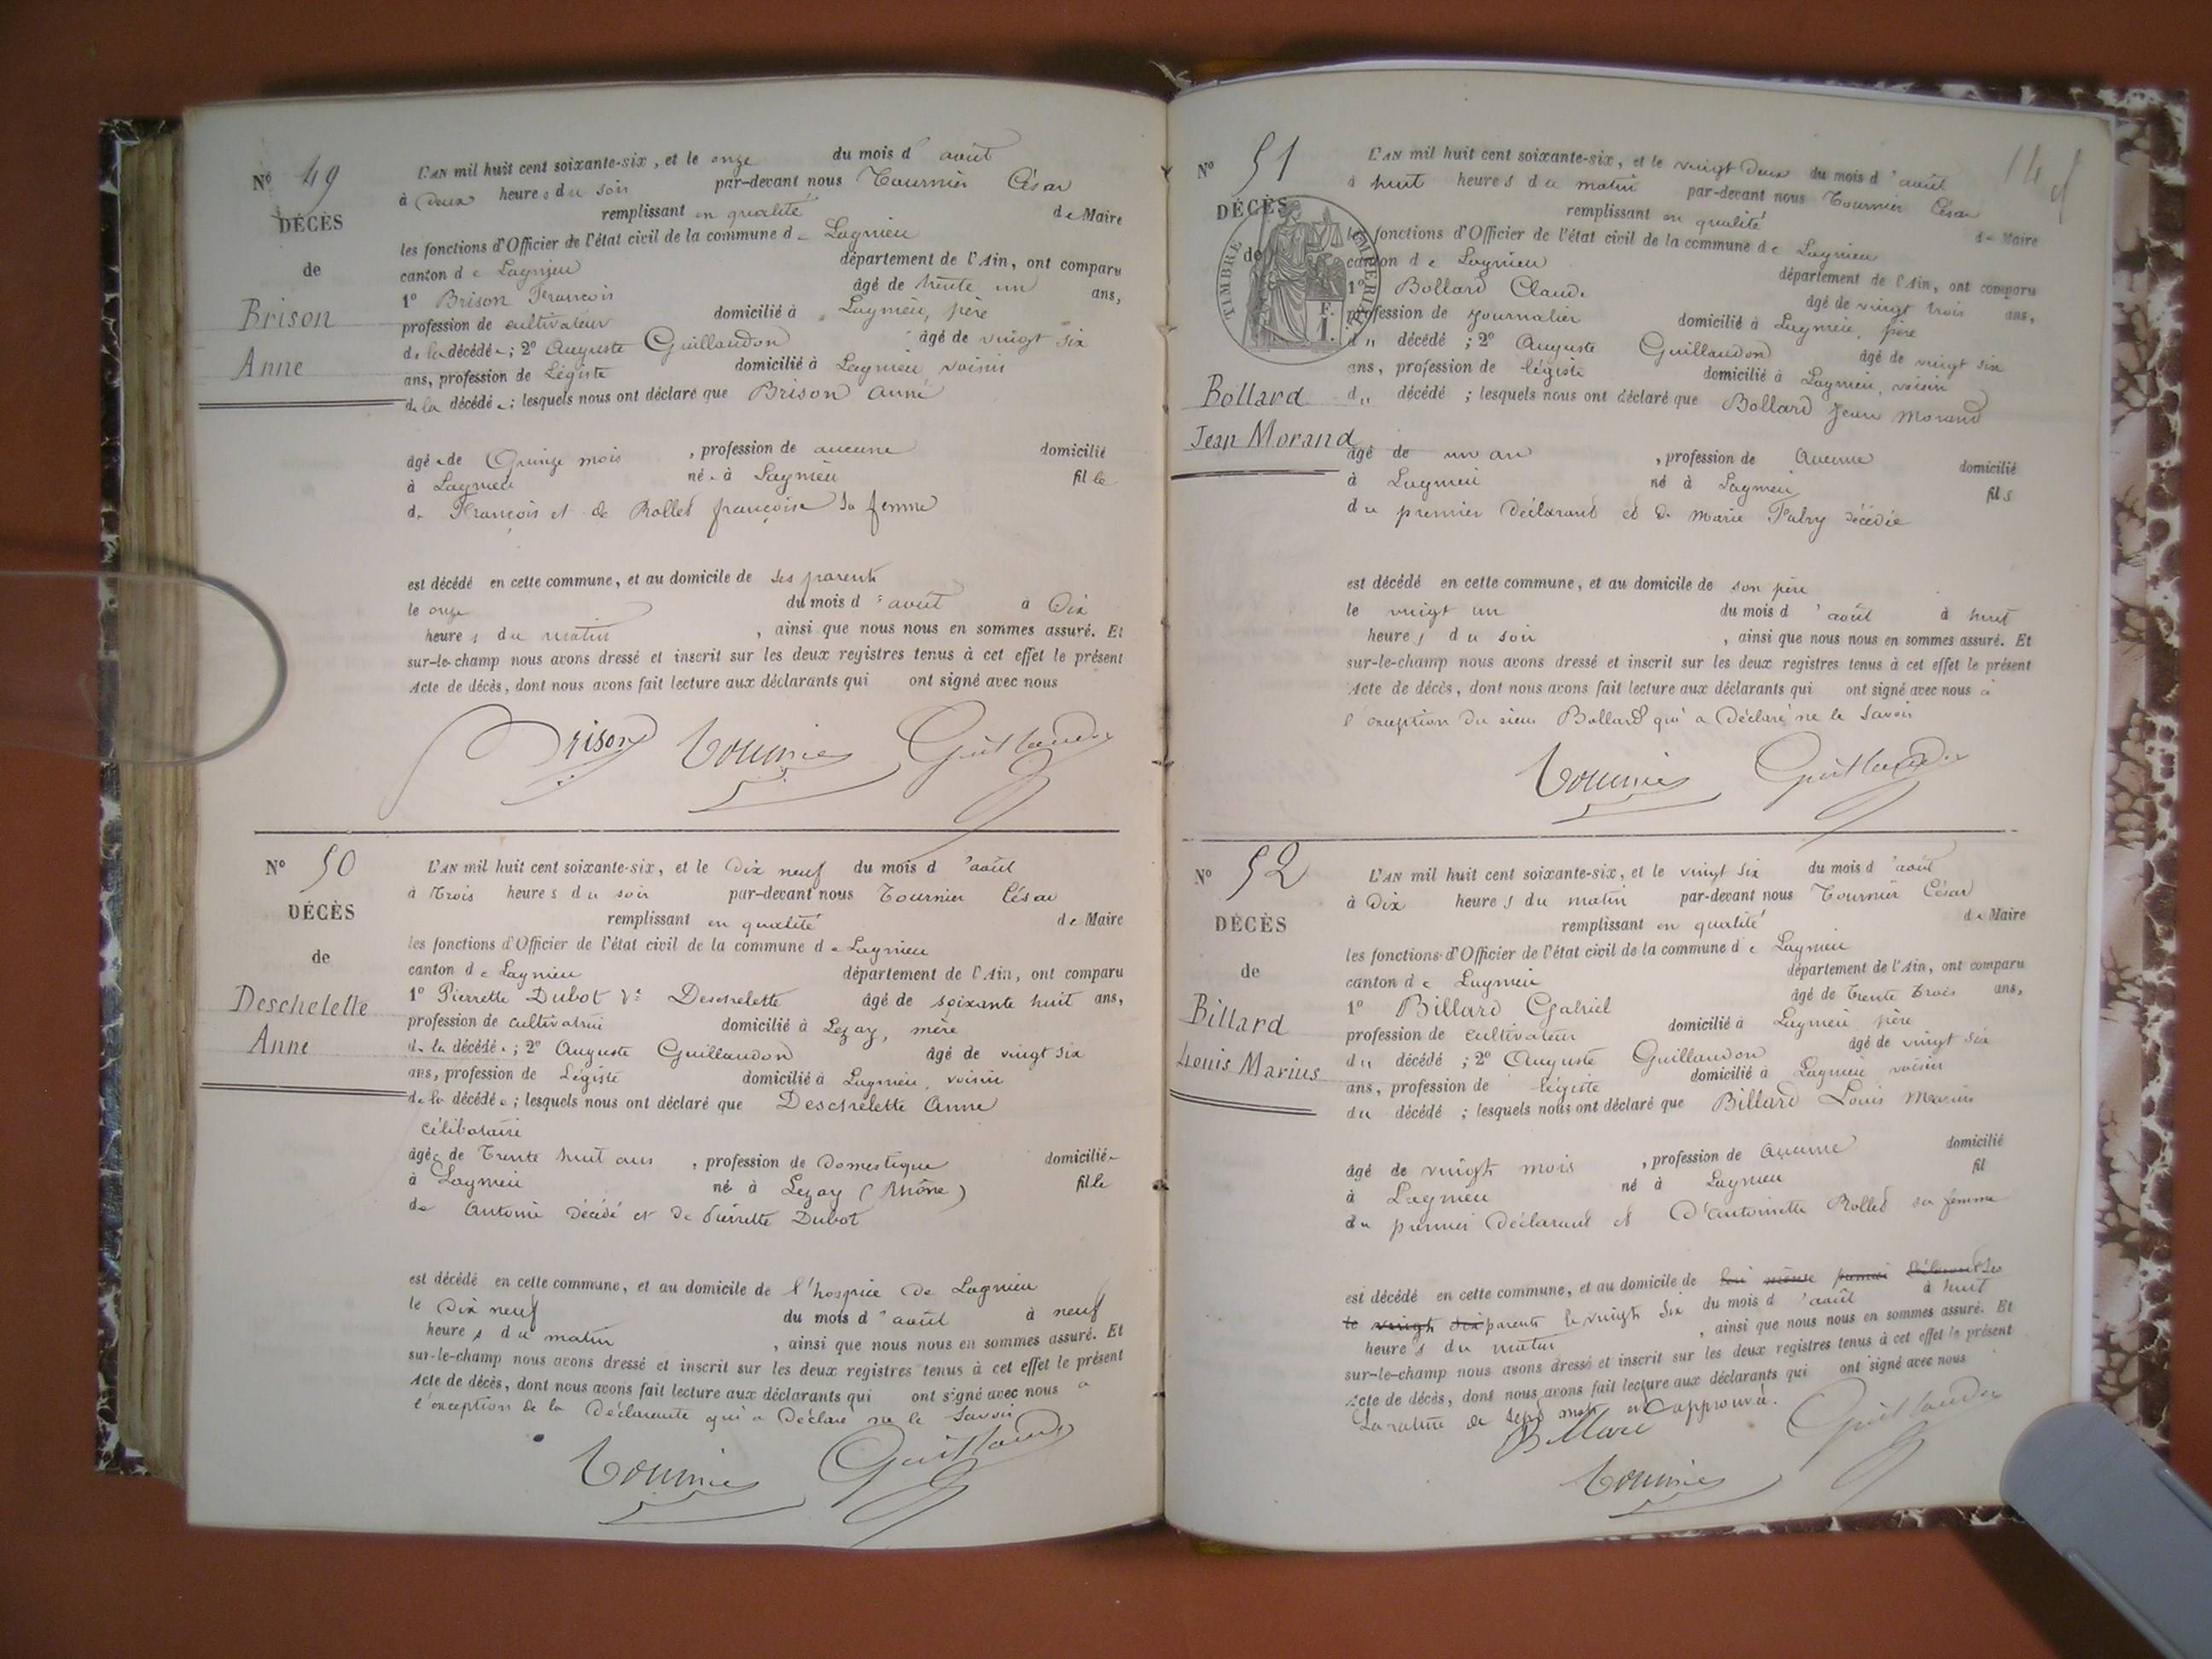 N° 49
DÉCÈS
de
Brison
Anne
L'AN mil huit cent soixante-six, et le onze du mois d'août
à Deux heures du soir par-devant nous Tournier César
remplissant en qualité de Maire
les fonctions d'Officier de l'état civil de la commune de Lagnieu
canton de Lagnieu département de l'Ain, ont comparu
1° Brison François âgé de trente un ans,
profession de cultivateur domicilié à Lagnieu, père
de la décédée; 2° Auguste Guillaudon âgé de vingt six
ans, profession de Légiste domicilié à Lagnieu voisin
de la décédée; lesquels nous ont déclaré que Brison Anne
âgée de Quinze mois, profession de aucune domicilié
à Lagnieu née à Lagnieu fille
de François et de Rollet françoise sa femme
est décédé en cette commune, et au domicile de ses parents
le onze du mois d'août à Dix
heures du matin, ainsi que nous nous en sommes assuré. Et
sur-le-champ nous avons dressé et inscrit sur les deux registres tenus à cet effet le présent
Acte de décès, dont nous avons fait lecture aux déclarants qui ont signé avec nous
Brison Tournier Guillaudon
N° 50
DÉCÈS
de
Deschelette
Anne
L'AN mil huit cent soixante-six, et le Dix neuf du mois d'août
à Trois heures du soir par-devant nous Tournier César
remplissant en qualité de Maire
les fonctions d'Officier de l'état civil de la commune de Lagnieu
canton de Lagnieu département de l'Ain, ont comparu
1° Pierrette Dubot Ve Deschelette âgé de soixante huit ans,
profession de cultivatrice domicilié à Lezay, mère
de la décédée; 2° Auguste Guillaudon âgé de vingt six
ans, profession de Légiste domicilié à Lagnieu, voisin
de la décédée; lesquels nous ont déclaré que Deschelette Anne
célibataire
âgée de Trente huit ans, profession de Domestique domiciliée
à Lagnieu né à Lezay (Rhône) fille
de Antoine Décédé et de Pierrette Dubot
est décédé en cette commune, et au domicile de l'hospice de Lagnieu
le Dix neuf du mois d'août à neuf
heures du matin, ainsi que nous nous en sommes assuré. Et
sur-le-champ nous avons dressé et inscrit sur les deux registres tenus à cet effet le présent
Acte de décès, dont nous avons fait lecture aux déclarants qui ont signé avec nous à
l'exception de la Déclarante qui a Déclaré ne le Savoir
Tournier Guillaudon
N° 51
DÉCÈS
de
TIMBRE IMPÉRIAL
1 F.
Bollard
Jean Morand
L'AN mil huit cent soixante-six, et le vingt Deux du mois d'août
à huit heures du matin par-devant nous Tournier César
remplissant en qualité de Maire
les fonctions d'Officier de l'état civil de la commune de Lagnieu
canton de Lagnieu département de l'Ain, ont comparu
1° Bollard Claude âgé de vingt trois ans,
profession de journalier domicilié à Lagnieu, père
du décédé; 2° Auguste Guillaudon âgé de vingt six
ans, profession de légiste domicilié à Lagnieu, voisin
du décédé; lesquels nous ont déclaré que Bollard Jean Morand
âgé de un an, profession de Aucune domicilié
à Lagnieu né à Lagnieu fils
du premier Déclarant et de Marie décédée
est décédé en cette commune, et au domicile de son père
le vingt un du mois d'août à huit
heures du soir, ainsi que nous nous en sommes assuré. Et
sur-le-champ nous avons dressé et inscrit sur les deux registres tenus à cet effet le présent
Acte de décès, dont nous avons fait lecture aux déclarants qui ont signé avec nous à
l'exception du sieur Bollard qui a Déclaré ne le Savoir
Tournier Guillaudon
N° 52
DÉCÈS
de
Billard
Louis Marius
L'AN mil huit cent soixante-six, et le vingt six du mois d'août
à Dix heures du matin par-devant nous Tournier César
remplissant en qualité de Maire
les fonctions d'Officier de l'état civil de la commune de Lagnieu
canton de Lagnieu département de l'Ain, ont comparu
1° Billard Gabriel âgé de Trente Trois ans,
profession de Cultivateur domicilié à Lagnieu père
du décédé; 2° Auguste Guillaudon âgé de vingt six
ans, profession de légiste domicilié à Lagnieu voisin
du décédé; lesquels nous ont déclaré que Billard Louis Marius
âgé de vingt mois, profession de Aucune domicilié
à Lagnieu né à Lagnieu fil
du premier Déclarant et D'antoinette Rollet sa femme
est décédé en cette commune, et au domicile de ses
le vingt six parents le vingt six du mois d'août à huit
heures du matin, ainsi que nous nous en sommes assuré. Et
sur-le-champ nous avons dressé et inscrit sur les deux registres tenus à cet effet le présent
Acte de décès, dont nous avons fait lecture aux déclarants qui ont signé avec nous
La rature de sept mots est approuvée.
Billard Guillaudon
Tournier